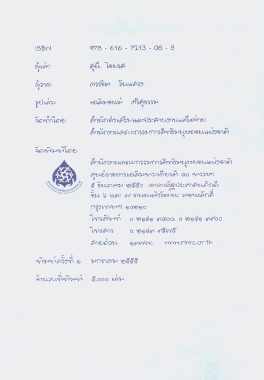 ISBN 978 - 616 - 7213 - 08 - 8
ผู้เล่า สุนี ไชยรส
ผู้วาด
รูปเล่ม เฉลิมชนม์
จัดทำโดย สำนักส่งเสริมและประสานงานเครือข่าย
สำนักงานคณะกรรมการสิทธิมนุษยชนแห่งชาติ
จัดพิมพ์โดย
สำนักงานคณะกรรมการสิทธิมนุษยชนแห่งชาติ
ศูนย์ราชการเฉลิมพระเกียรติ ๘๐ พรรษา
๕ ธันวาคม ๒๕๕๐ อาคารรัฐประศาสนภักดี
ชั้น ๖ และ ๗ ถนนแจ้งวัฒนะ เขตหลักสี่
กรุงเทพฯ ๑๐๒๑๐
โทรศัพท์ ๐ ๒๑๔๑ ๓๘๐๐, ๐ ๒๑๔๑ ๓๙๐๐
โทรสาร
สายด่วน ๑๓๗๗, www.nhrc.or.th
พิมพ์ครั้งที่ ๑ มกราคม ๒๕๕๕
จำนวนที่พิมพ์ ๕,๐๐๐ เล่ม